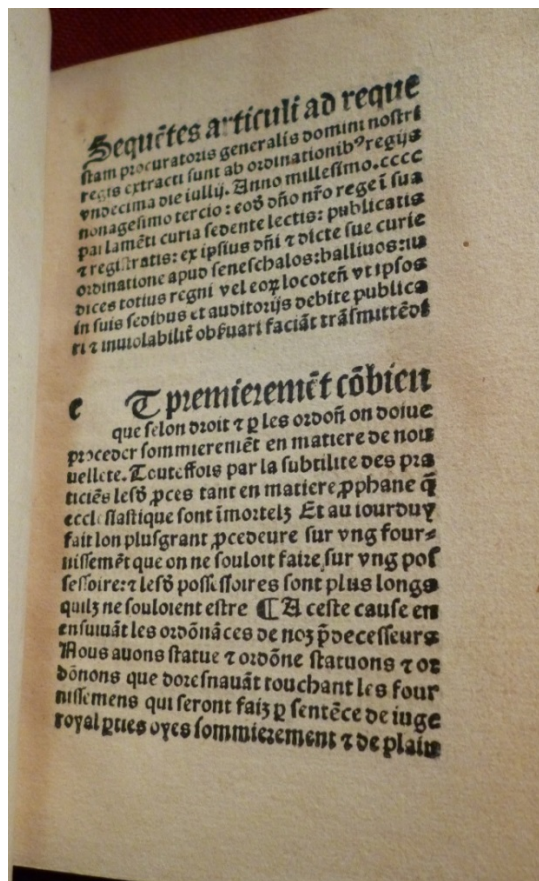 Sequẽtes articuli ad reque
stam procuratoris generalis domini nostri
regis extracti sunt ab ordinationibꝰ regijs
vndecima die iullij. Anno millesimo.cccc
nonagesimo tercio: eoꝝ dño nr̃o rege ĩ sua
parlamẽti curia sedente lectis: publicatis
⁊ registratis: ex ipsius dñi ⁊ dicte sue curie
ordinatione apud seneschalos: balliuos: iu
dices totius regni vel eoꝝ locoteñ vt ipsos
in suis sedibus et auditorijs debite publica
ri ⁊ inuiolabilit̃ obẜuari faciãt trãsmittẽdi
e T premieremẽt cõbien
que selon droit ⁊ ꝑ les ordoñ on doiue
proceder sommieremẽt en matiere de nou
uellete. Touteffois par la subtilite des pra
ticiẽs lesd̃ ꝓces tant en matiere ꝓphane q̃
ecclesiastique sont ĩmortelz Et au iourduy
fait lon plusgrant ꝓcedeure sur vng four⸗
nissemẽt que on ne souloit faire sur vng pos
sessoire: ⁊ lesd̃ possessoires sont plus longs
quilz ne souloient estre ¶ A ceste cause en
ensuiuãt les ordõnãces de noz p̃decesseurs
Nous auons statue ⁊ ordõne statuons ⁊ or
dõnons que doresnauãt touchant les four
nissemens qui seront faiz ꝑ sentẽce de iuge
royal ꝑties oyes sommierement ⁊ de plain